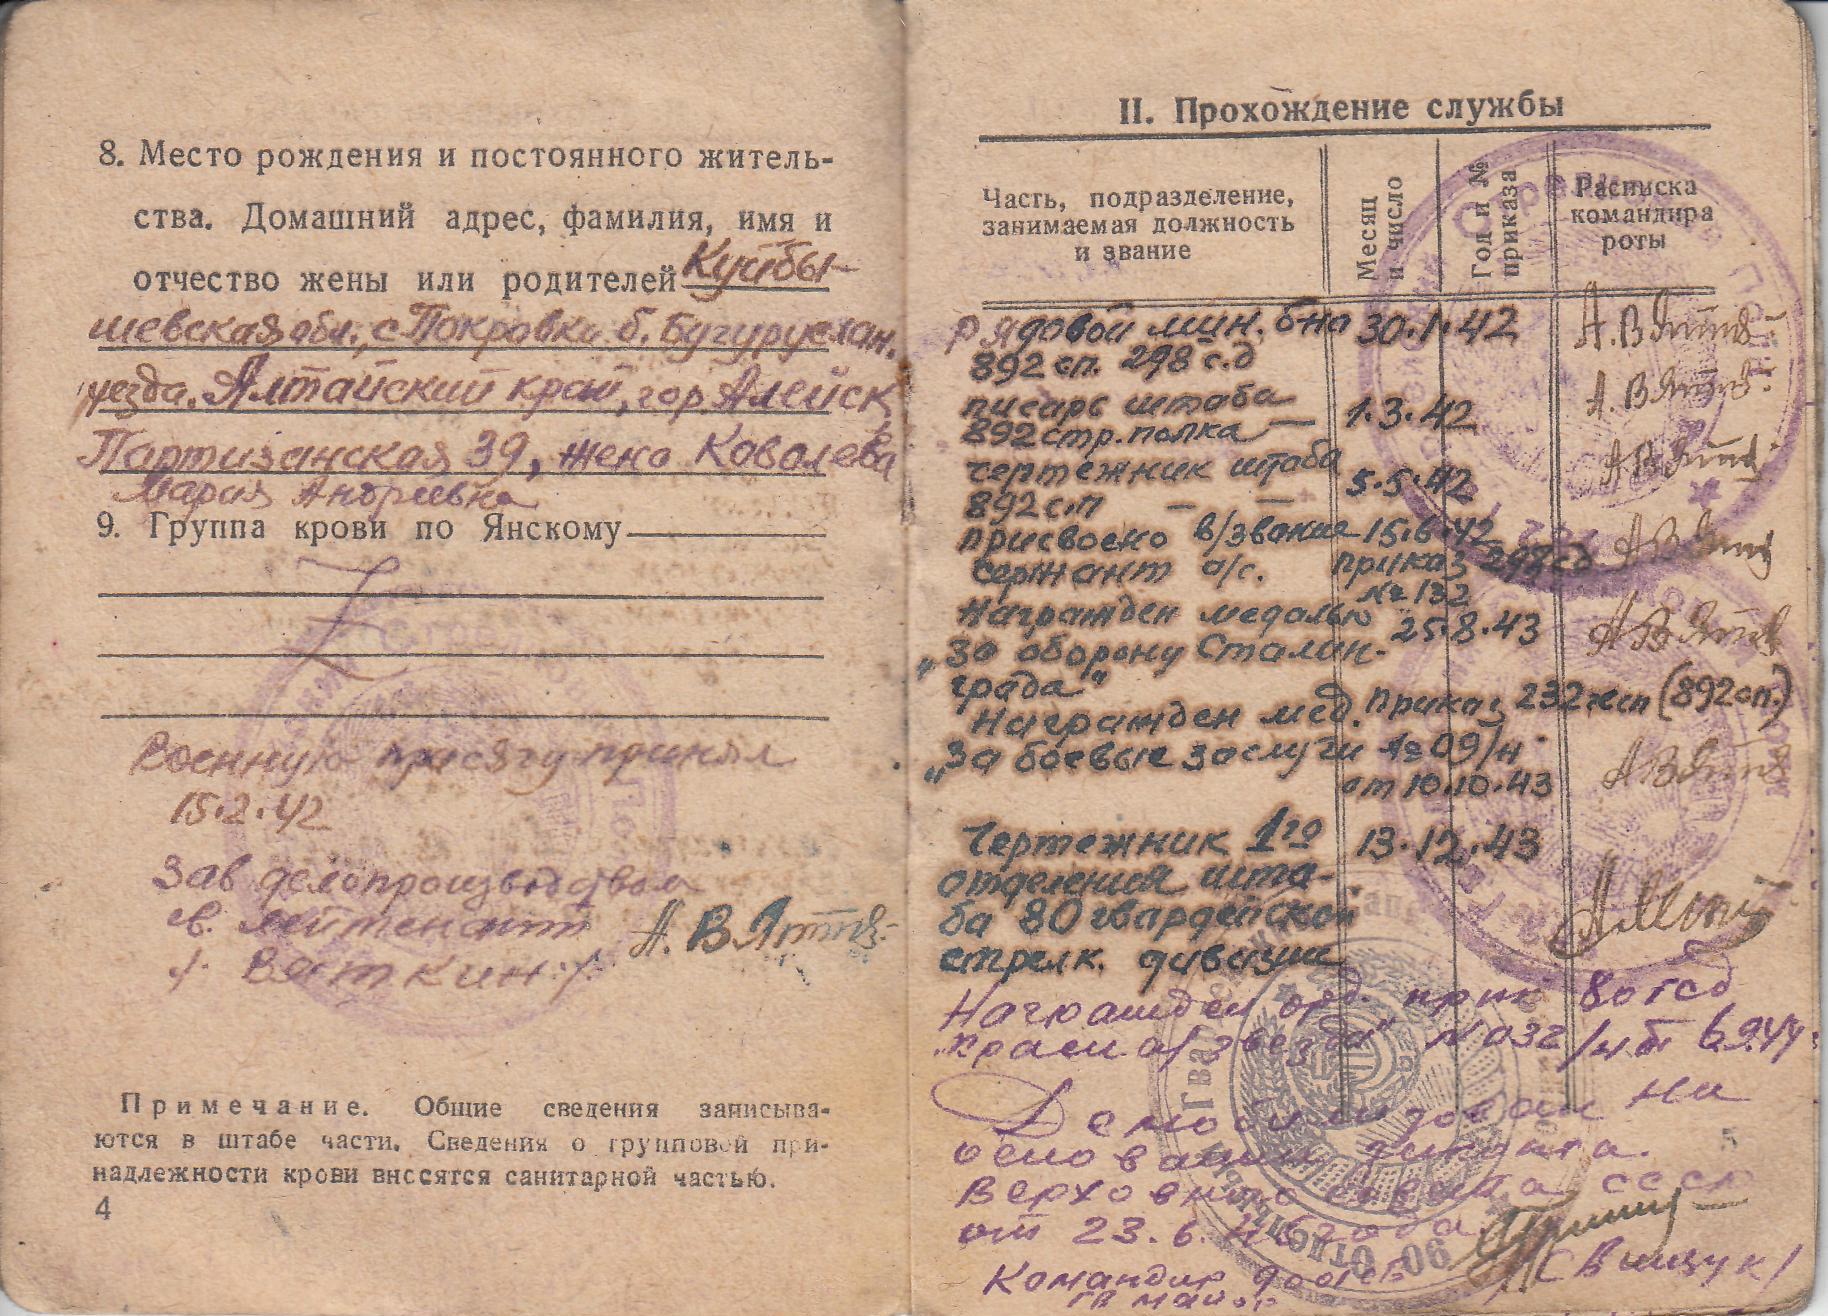 8. Место рождения и постоянного житель-
ства. Домашний адрес, фамилия, имя и
отчество жены или родителей Куйбы-
шевская обл., с Покровка б. Бугуруслан.
уезда. Алтайский край, гор Алейск
Партизанская 39, жена Ковалева
Мария Андреевна
9. Группа крови по Янскому
Военную присягу принял
15.2.42
Зав делопроизводством
лейтенант
/. Вяткин./
Примечание. Общие сведения записыва-
ются в штабе части. Сведения о групповой при-
надлежности крови вносятся санитарной частью.
4
II. Прохождение службы
Часть, подразделение,
занимаемая должность
и звание
Месяц
и число
Год и №
приказа
Расписка
командира
роты
рядовой мин. б-на 30.1.42
892 сп. 298 с.д
писарь штаба 1.3.42
892 стр. полка —
чертежник штаба 5.5.42
892 с.п — —
присвоено в/звание 15.6.42
сержант а/с. приказ 298 сд
№ 132
Награжден медалью 25.8.43
„За оборону Сталин-
града"
Награжден мед. приказ 232 гсп (892 сп.)
„За боевые заслуги № 09/н
от 10.10.43
Чертежник 1го 13.12.43
отделения шта-
ба 80 гвардейской
стрелк. дивизии
Награжден орд. прик 80 гсд
„Красная звезда" № 032/н от 6.9.44
Демобилизован на
основании
Верховного совета СССР
от 23.6.45 года.
Командир
гв майор